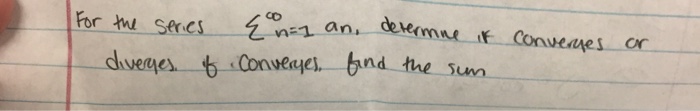 For the series Σ^∞ n=1 an, determine if converges or
diverges. If converges, find the sum